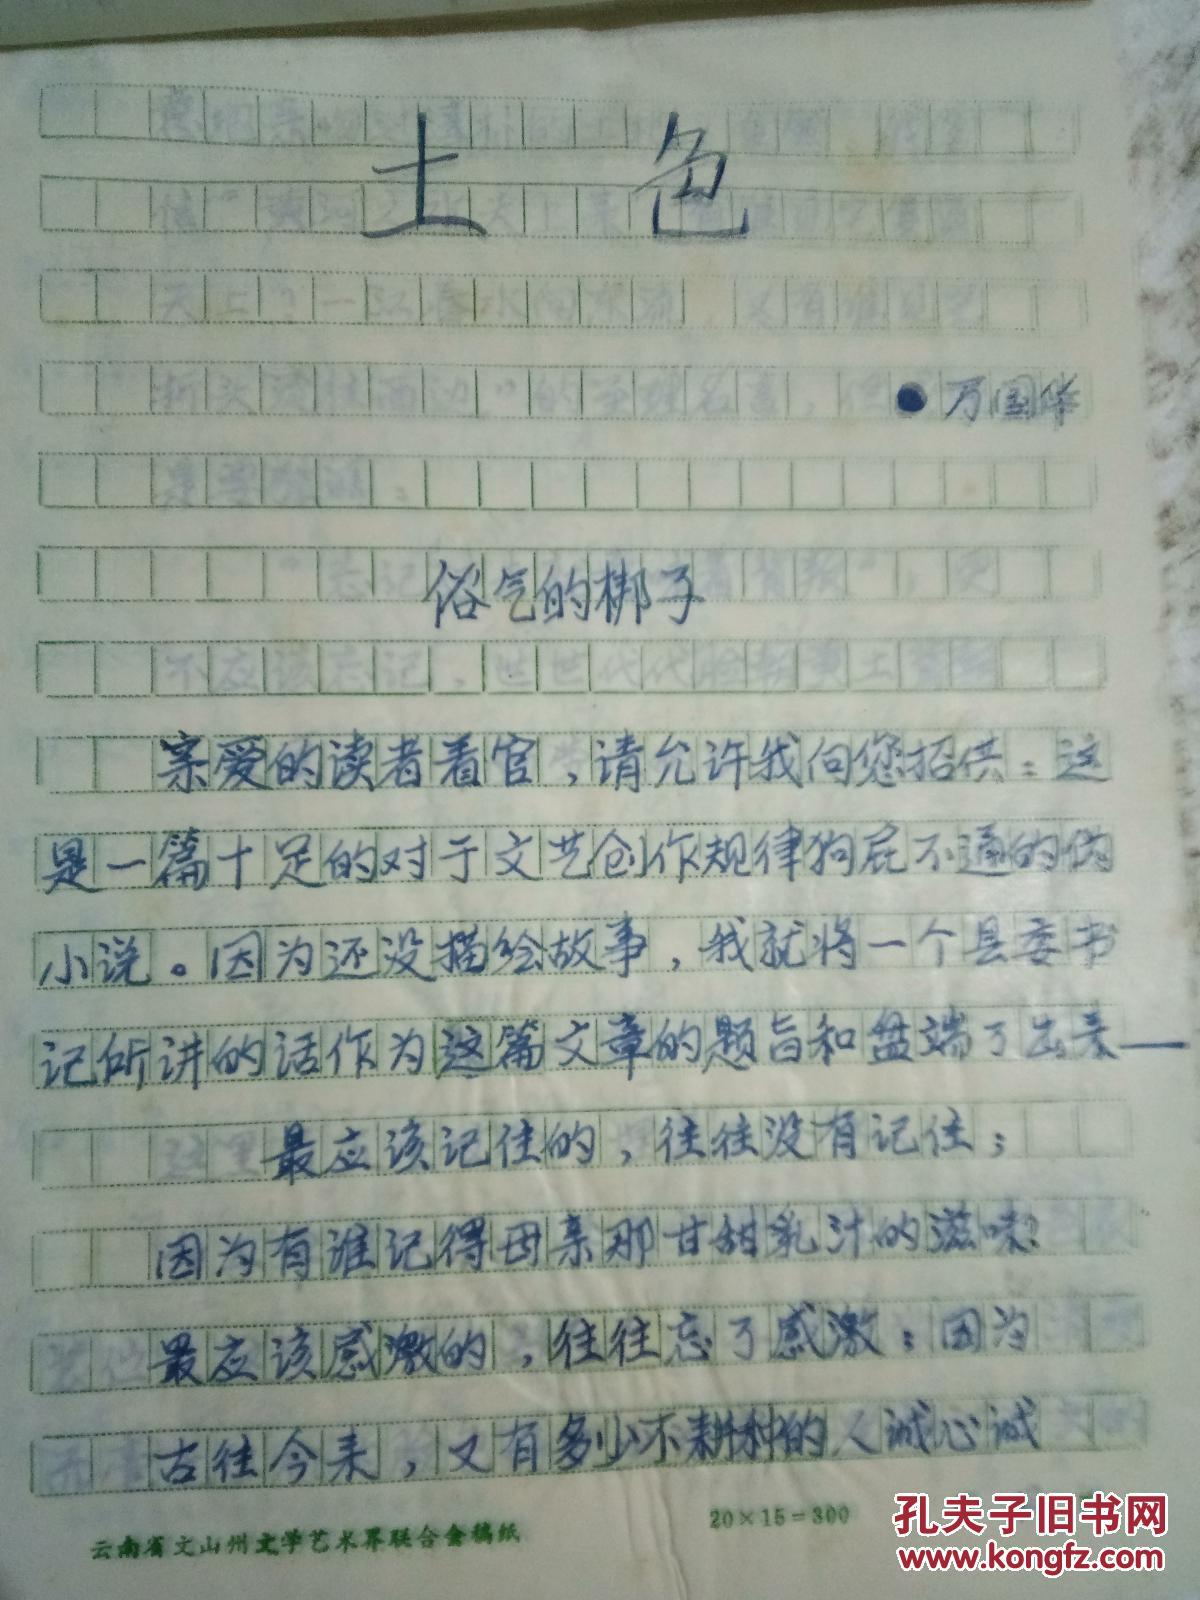 土色
● 万国华
俗气的梆子
亲爱的读者看官，请允许我向您招供：这
是一篇十足的对于文艺创作规律狗屁不通的伪
小说。因为还没描绘故事，我就将一个县委书
记所讲的话作为这篇文章的题旨和盘端了出来——
最应该记住的，往往没有记住；
因为有谁记得母亲那甘甜乳汁的滋味？
最应该感激的，往往忘了感激；因为
古往今来，又有多少不耕种的人诚心诚
云南省文山州文学艺术界联合会稿纸
20×15=300
孔夫子旧书网
www.kongfz.com